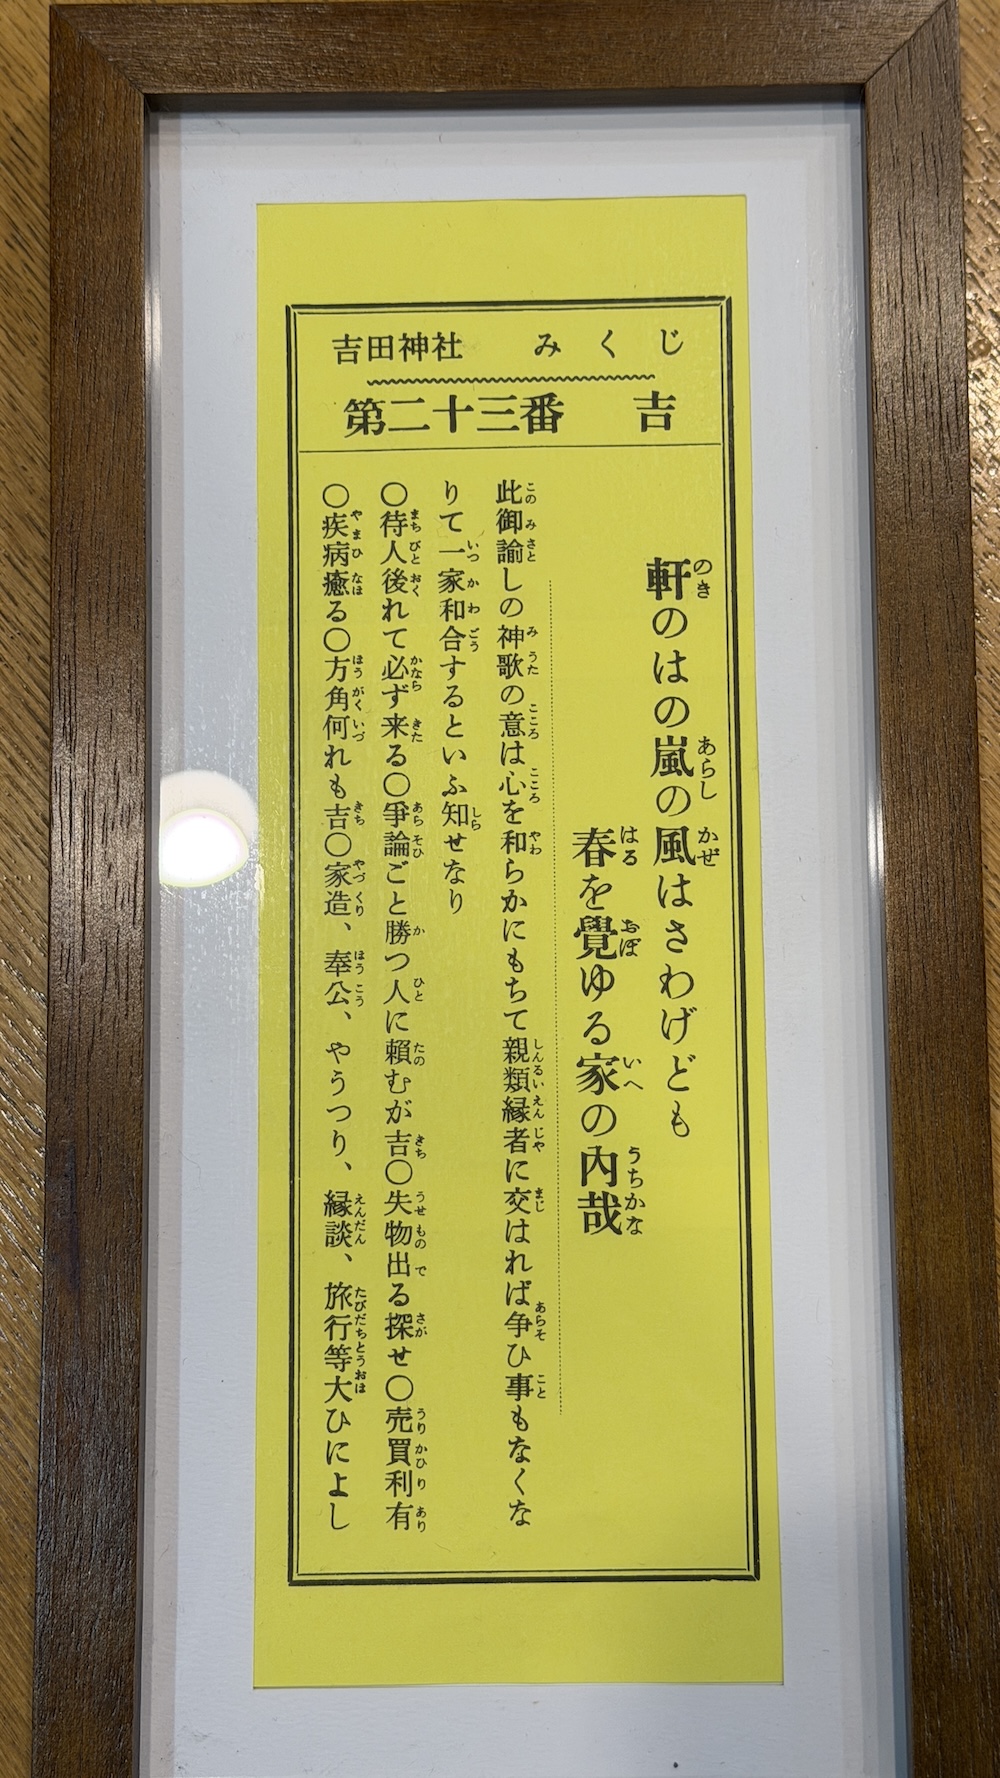 吉田神社　みくじ
第二十三番　吉
軒のはの嵐の風はさわげども
春を覺ゆる家の内哉
此御諭しの神歌の意は心を和らかにもちて親類縁者に交はれば争ひ事もなくな
りて一家和合するといふ知せなり
〇待人後れて必ず来る〇爭論ごと勝つ人に頼むが吉〇失物出る探せ〇売買利有
〇疾病癒る〇方角何れも吉〇家造、奉公、やうつり、縁談、旅行等大ひによし